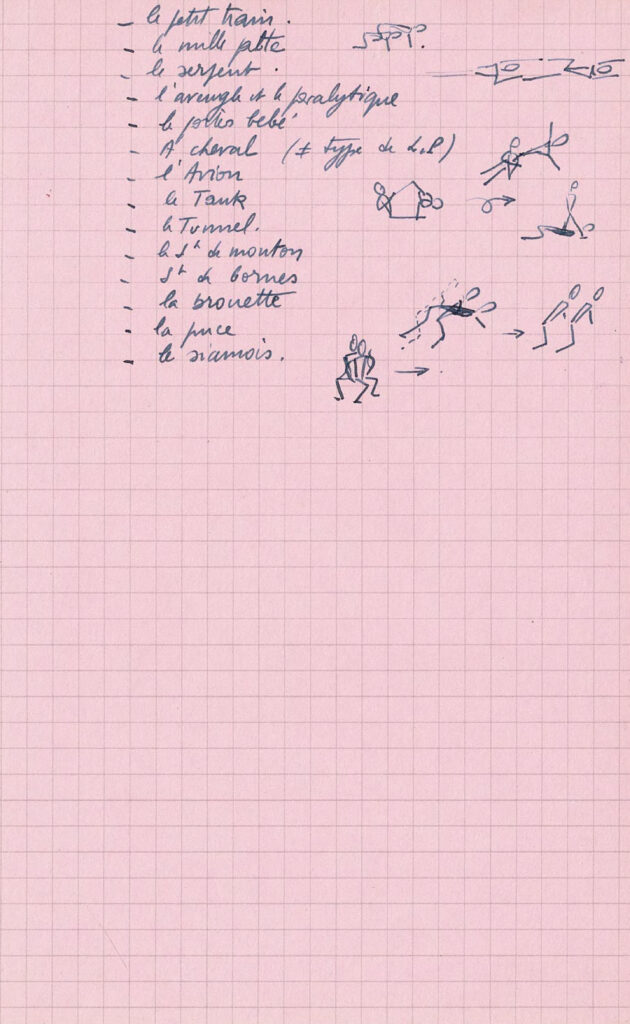 - le petit train.
- le mille patte
- le serpent.
- l'aveugle et le paralytique
- le portes bébé
- A cheval (≠ type de L.P)
- l'Avion
- le Tank
- le Tunnel.
- le St de mouton
- St de bornes
- la brouette
- la puce
- le siamois.